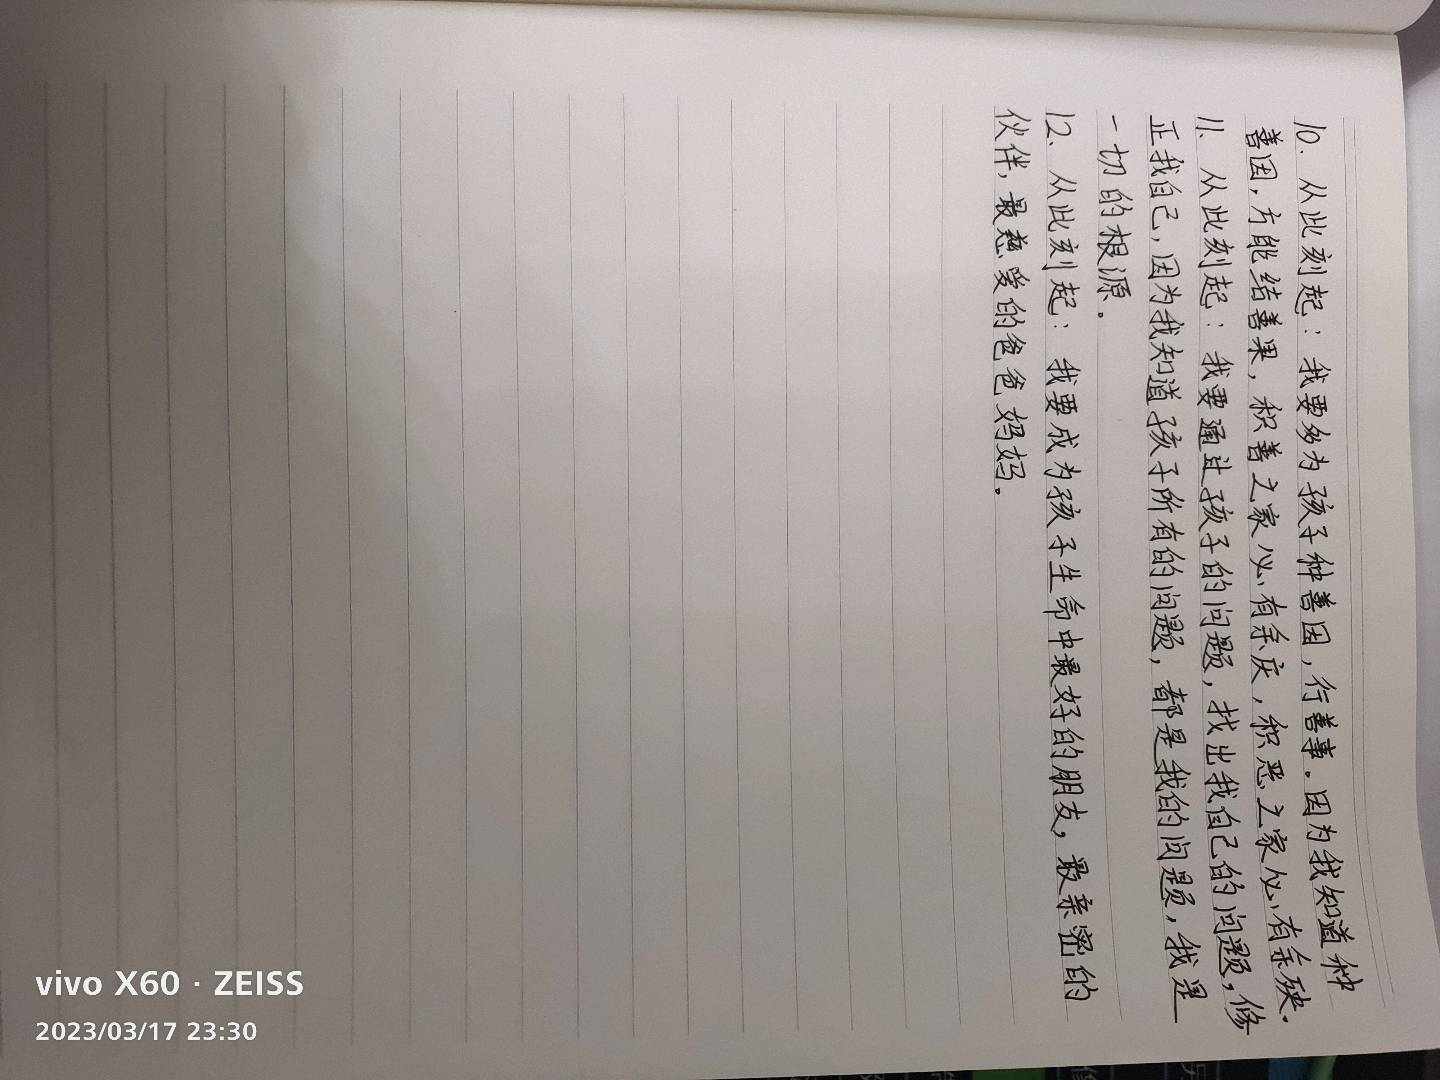 10. 从此刻起：我要多为孩子种善因，行善事。因为我知道种
善因，方能结善果，积善之家必有余庆，积恶之家必有余殃.
11. 从此刻起：我要通过孩子的问题，找出我自己的问题，修
正我自己，因为我知道孩子所有的问题，都是我的问题，我是
一切的根源。
12、从此刻起：我要成为孩子生命中最好的朋友，最亲密的
伙伴，最慈爱的爸爸妈妈。
vivo X60 · ZEISS
2023/03/17 23:30